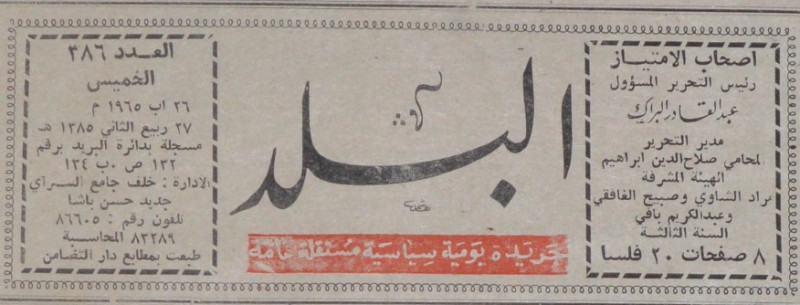 اصحاب الامتياز
رئيس التحرير المسؤول
عبدالقادر البراك
مدير التحرير
لمحامي صلاح الدين ابراهيم
الهيئة المشرفة
مراد الشاوي وصبيح الغافقي
وعبدالكريم بافي
السنة الثالثة
٨ صفحات ٢٠ فلسا
البلد
جريدة يومية سياسية مستقلة عامة
العدد ٣٨٦
الخميس
٢٦ اب ١٩٦٥ م
٢٧ ربيع الثاني ١٣٨٥ هـ
مسجلة بدائرة البريد برقم
١٣٢ ص٠ب ١٣٤
الادارة : خلف جامع السراي
جديد حسن باشا
تلفون رقم : ٨٦٦٠٥
٨٣٢٨٩ المحاسبة
طبعت بمطابع دار التضامن